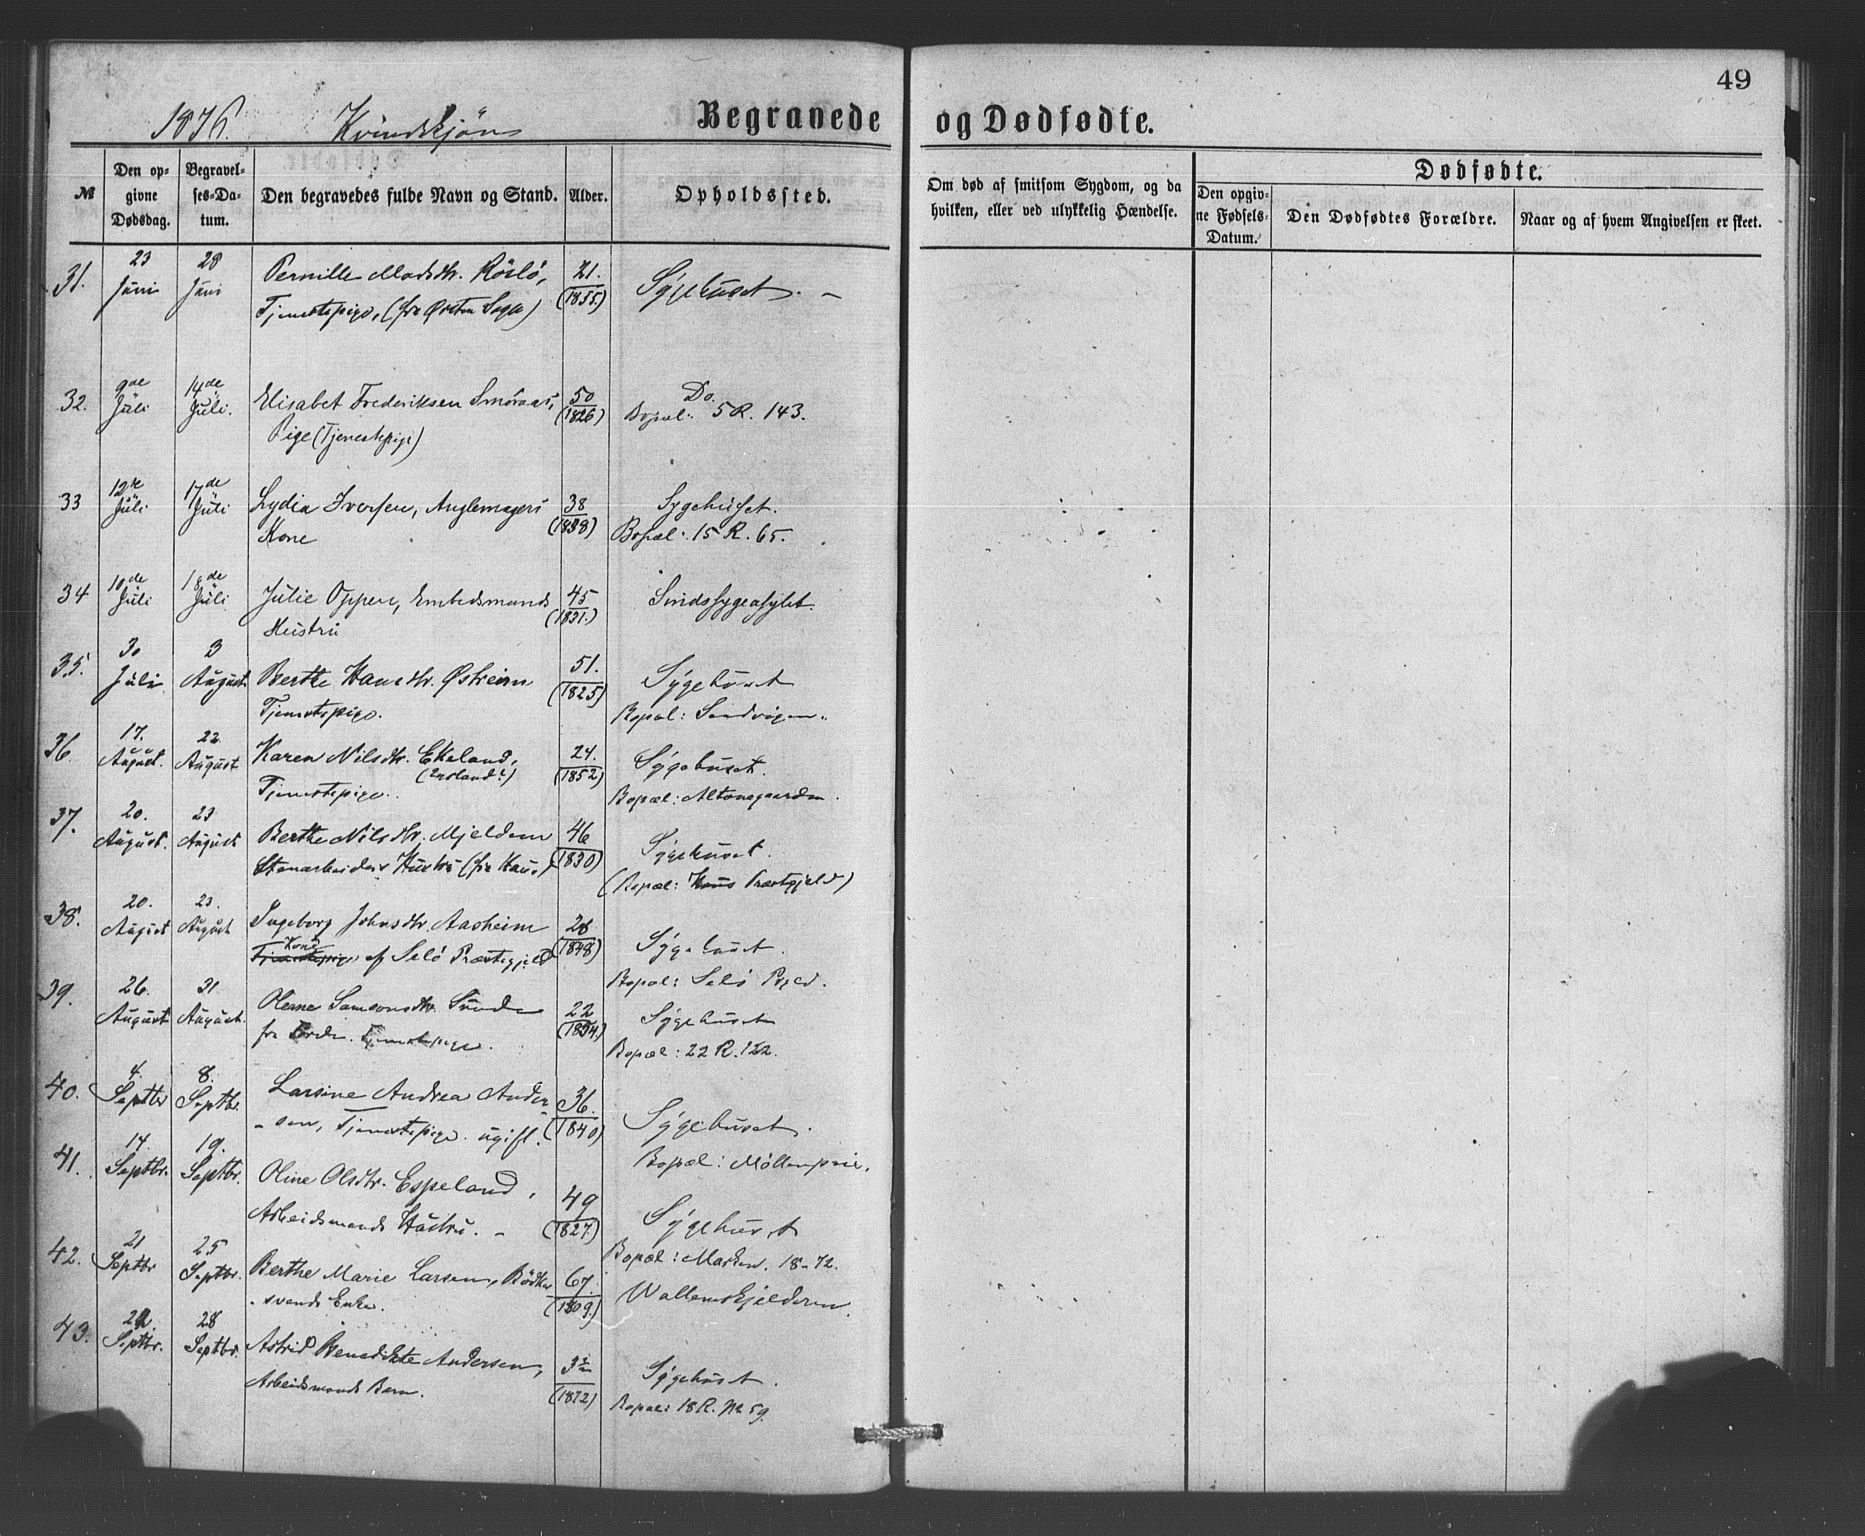 49
1876. Kvindekjøn
Begravede og Dødfødte.
№
Den opgivne Dødsdag.
Begravelses-Datum.
Den begravedes fulde Navn og Stand.
Alder.
Opholdssted.
Om død af smitsom Sygdom, og da hvilken, eller ved ulykkelig Hændelse.
Dødfødte.
Den opgivne Fødsels-Datum.
Den Dødfødtes Forældre.
Naar og af hvem Angivelsen er skeet.
31. 23 Juni 28 Juni Pernille Madsdtr. 21. (1855) Sygehuset. –
Tjenestepige, (fra Sogn)
32. 9de Juli 14de Juli. Elisabet Frederiksen Smøraas, 50 (1826) Do.
Pige (Tjenestepige) Bopæl: 5 R. 143.
33 12te Juli 17de Juli Lydia Iversen, 38 (1838) Sygehuset.
Kone Bopæl: 15 R. 65.
34 10de Juli 18de Juli Julie Oppen, Embedsmands 45 (1831.) Sindssygeasylet.
Hustru
35. 30 Juli 3 August. Berthe Hansdtr. Østreim 51. (1825) Sygehuset
Tjenestepige. Bopæl: Sandvigen.
36. 17. August. 22 August Karen Nilsdtr. Ekeland, 24. (1852) Sygehuset.
Tjenestepige. Bopæl: Altonagaarden.
37. 20. August. 23 August Berthe Nilsdtr. Mjeldem 46 (1830) Sygehuset.
Stenarbeiders Hustru (fra Haus) (Bopæl: Haus Præstgjeld)
38. 20. August 23. August Ingeborg Johnsdtr. Aasheim 28 (1848) Sygehuset.
Kone
Tjenestepige af Selö Præstegjeld Bopæl: Selö Pgjeld.
39. 26. August 31 August. Samsonsdtr. Sunde 22 (1854) Sygehuset
fra Förde. Tjenestepige. Bopæl: 22 R. 122.
40. 4. Septbr 8. Septbr. Larsine Andrea Ander 36. (1840) Sygehuset.
-sen, Tjenestepige. ugift. Bopæl: Möllenpris.
41. 14. Septbr. 19. Septbr. Oline Olsdtr. Espeland, 49 (1827.) Sygehuset
Arbeidsmands Hustru. – Bopæl: Marken. 18-72.
42. 21 Septbr 25 Septbr. Berthe Marie Larsen, Bödker 67. (1809.)
-svends Enke.
43. Septbr. 28 Septbr. Astrid Benedikte Andersen, (1872) Sygehuset.
Arbeidsmands Barn. Bopæl: 18 R. № 59.